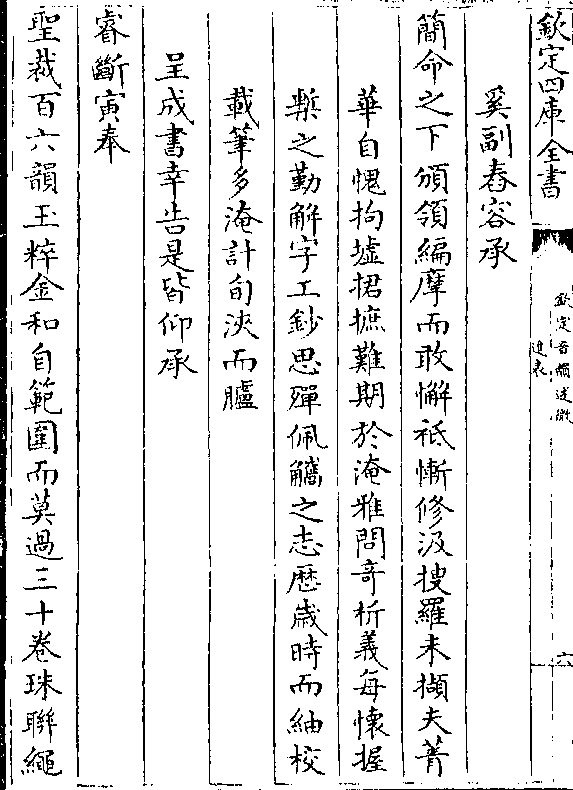 欽定四庫全書
欽定音韻述微
進表
六
奚副舂容承
簡命之下頒領編摩而敢懈祗慚修汲搜羅未擷夫菁
華自愧拘墟捃摭難期於淹雅問奇析義每懷握
槧之勤解字工鈔思殫佩觿之志歴嵗時而紬校
載筆多淹計旬浹而臚
呈成書幸告是皆仰承
睿斷寅奉
聖裁百六韻玉粹金和自範圍而莫過三十卷珠聨繩